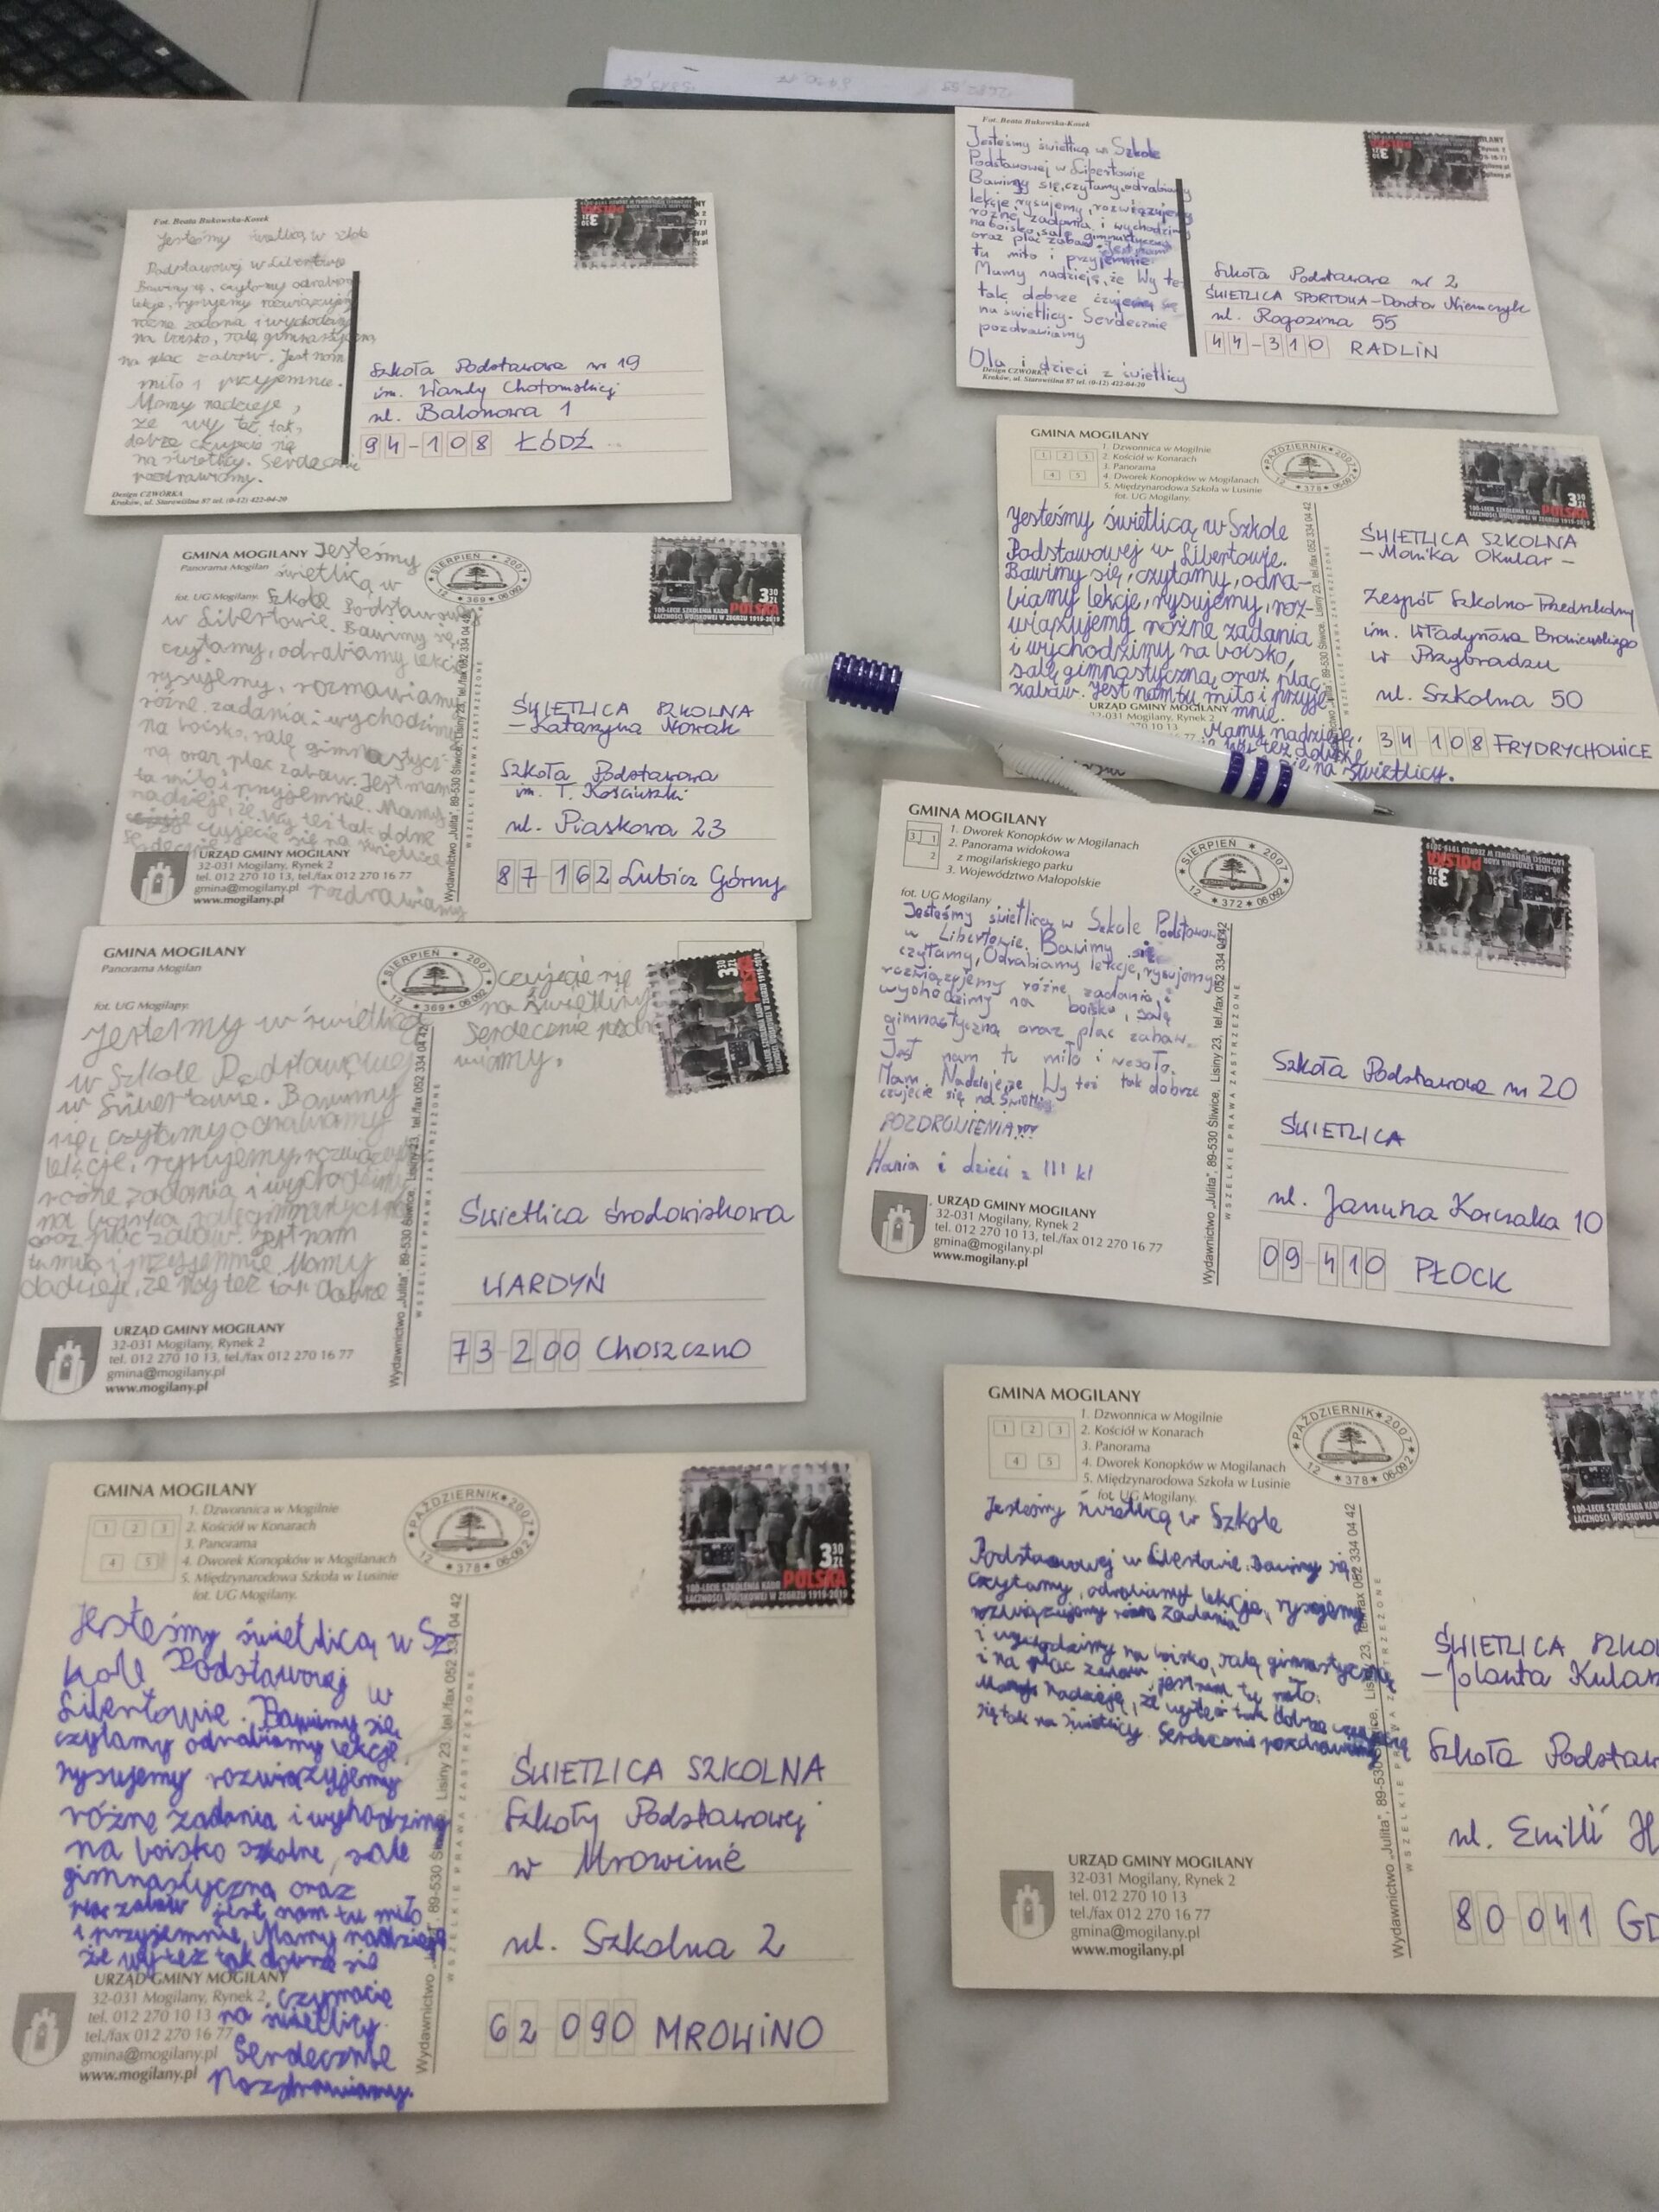 Fot. Beata Bukowska-Kosek
Jesteśmy świetlicą w szkole
Podstawowej w Libertowie
Bawimy się, czytamy odrabiamy
lekcje, rysujemy rozwiązujemy
różne zadania i wychodzimy
na boisko, salę gimnastyczną
na plac zabaw. Jest nam
miło i przyjemnie.
Mamy nadzieje,
że wy też tak
dobrze czujecie się
na świetlicy. Serdecznie
pozdrawiamy.
Design CZWÓRKA
Kraków, ul. Starowiślna 87 tel. (0-12) 422-04-20
Szkoła Podstawowa nr 19
im. Wandy Chotomskiej
ul. Balonowa 1
94-108 ŁÓDŹ
Fot. Beata Bukowska-Kosek
Jesteśmy świetlicą w Szkole
Podstawowej w Libertowie
Bawimy się, czytamy, odrabiamy
lekcje rysujemy, rozwiązujemy
różne zadania i wychodzimy
na boisko, salę gimnastyczną
oraz plac zabaw. Jest nam
tu miło i przyjemnie.
Mamy nadzieję, że Wy też
tak dobrze czujecie się
na świetlicy. Serdecznie
pozdrawiamy
Ola i dzieci z świetlicy
Design CZWÓRKA
Kraków, ul. Starowiślna 87 tel. (0-12) 422-04-20
Szkoła Podstawowa nr 2
ŚWIETLICA SPORTOWA-Dorota Niemczyk
ul. Rogozina 55
44-310 RADLIN
GMINA MOGILANY
Panorama Mogilan
fot. UG Mogilany.
SIERPIEŃ 2007
12 369 06092
Jesteśmy
świetlicą w
Szkole Podstawowej
w Libertowie. Bawimy się,
czytamy, odrabiamy lekcje
rysujemy, rozmawiamy
różne zadania i wychodzimy
na boisko, salę gimnastycz-
ną oraz plac zabaw. Jest nam
tu miło i przyjemnie. Mamy
nadzieję, że Wy też tak dobrze
czujecie się na świetlicy
Serdecznie
pozdrawiamy
URZĄD GMINY MOGILANY
32-031 Mogilany, Rynek 2
tel. 012 270 10 13, tel./fax 012 270 16 77
gmina@mogilany.pl
www.mogilany.pl
Wydawnictwo „Julita", 89-530 Śliwice, Lisiny 23, tel./fax 052 334 04 42
WSZELKIE PRAWA ZASTRZEŻONE
3 30 ZŁ
POLSKA
100-LECIE SZKOLENIA KADR
ŁĄCZNOŚCI WOJSKOWEJ W ZEGRZU 1919-2019
ŚWIETLICA SZKOLNA
- Katarzyna Nowak
Szkoła Podstawowa
im. T. Kościuszki
ul. Piaskowa 23
87 162 Lubicz Górny
GMINA MOGILANY
1. Dzwonnica w Mogilnie
2. Kościół w Konarach
3. Panorama
4. Dworek Konopków w Mogilanach
5. Międzynarodowa Szkoła w Lusinie
fot. UG Mogilany.
1 2 3
4 5
PAŹDZIERNIK 2007
12 378 06092
Jesteśmy świetlicą w Szkole
Podstawowej w Libertowie.
Bawimy się, czytamy, odra-
biamy lekcje, rysujemy, roz-
wiązujemy różne zadania
i wychodzimy na boisko,
salę gimnastyczną oraz plac
zabaw. Jest nam tu miło i przyje-
mnie.
Mamy nadzieję,
że wy też dobrze
się na świetlicy.
URZĄD GMINY MOGILANY
32-031 Mogilany, Rynek 2
Wydawnictwo „Julita", 89-530 Śliwice, Lisiny 23, tel./fax 052 334 04 42
WSZELKIE PRAWA ZASTRZEŻONE
3 30 ZŁ
POLSKA
100-LECIE SZKOLENIA KADR
ŁĄCZNOŚCI WOJSKOWEJ W ZEGRZU 1919-2019
ŚWIETLICA SZKOLNA
- Monika Okular -
Zespół Szkolno Przedszkolny
im. Władysława Broniewskiego
w Przybradzu
ul. Szkolna 50
34 108 FRYDRYCHOWICE
GMINA MOGILANY
Panorama Mogilan
fot. UG Mogilany.
SIERPIEŃ 2007
12 369 06092
Jesteśmy w świetlicą
w Szkole Podstawowej
w Libertowie. Bawimy
się, czytamy odrabiamy
lekcje, rysujemy rozwiązujemy
różne zadania i wychodzimy
na boisko salę gimnastyczną
oraz plac zabaw. Jest nam
tu miło i przyjemnie Mamy
nadzieję, że Wy też tak dobrze
czujecie się
na świetlicy
Serdecznie pozdra
wiamy.
URZĄD GMINY MOGILANY
32-031 Mogilany, Rynek 2
tel. 012 270 10 13, tel./fax 012 270 16 77
gmina@mogilany.pl
www.mogilany.pl
Wydawnictwo „Julita", 89-530 Śliwice, Lisiny 23, tel./fax 052 334 04 42
WSZELKIE PRAWA ZASTRZEŻONE
3 30 ZŁ
POLSKA
Świetlica Środowiskowa
WARDYŃ
73-200 Choszczno
GMINA MOGILANY
1. Dworek Konopków w Mogilanach
2. Panorama widokowa
z mogilańskiego parku
3. Województwo Małopolskie
3 1
2
fot. UG Mogilany
SIERPIEŃ 2007
12 372 06092
Jesteśmy świetlicą w Szkole Podstawow
w Libertowie. Bawimy się
czytamy, Odrabiamy lekcje, rysujemy
rozwiązujemy różne zadania i
wychodzimy na boisko, salę
gimnastyczną oraz plac zabaw.
Jest nam tu miło i wesoło.
Mam. Nadzieje, że Wy też tak dobrze
czujecie się na świetlicy
POZDROWIENIA!!!
Hania i dzieci z III kl
URZĄD GMINY MOGILANY
32-031 Mogilany, Rynek 2
tel. 012 270 10 13, tel./fax 012 270 16 77
gmina@mogilany.pl
www.mogilany.pl
Wydawnictwo „Julita", 89-530 Śliwice, Lisiny 23, tel./fax 052 334 04 42
WSZELKIE PRAWA ZASTRZEŻONE
3 30 ZŁ
POLSKA
100-LECIE SZKOLENIA KADR
ŁĄCZNOŚCI WOJSKOWEJ W ZEGRZU 1919-2019
Szkoła Podstawowa nr 20
ŚWIETLICA
ul. Janusza Korczaka 10
09-410 PŁOCK
GMINA MOGILANY
1. Dzwonnica w Mogilnie
2. Kościół w Konarach
3. Panorama
4. Dworek Konopków w Mogilanach
5. Międzynarodowa Szkoła w Lusinie
fot. UG Mogilany.
1 2 3
4 5
PAŹDZIERNIK 2007
12 378 06092
Jesteśmy świetlicą w Sz
kole Podstawowej w
Libertowie. Bawimy się
czytamy odrabiamy lekcje
rysujemy rozwiązyjemy
różne zadania i wychodzimy
na boisko szkolne, sale
gimnastyczną oraz
plac zabaw jest nam tu miło
i przyjemnie, Mamy nadzieję
że wy też tak dobrze się
czymacie
na świetlicy.
Serdecznie
Pozdrawiamy.
URZĄD GMINY MOGILANY
32-031 Mogilany, Rynek 2
tel. 012 270 10 13
tel./fax 012 270 16 77
gmina@mogilany.pl
www.mogilany.pl
Wydawnictwo „Julita", 89-530 Śliwice, Lisiny 23, tel./fax 052 334 04 42
WSZELKIE PRAWA ZASTRZEŻONE
3 30 ZŁ
POLSKA
100-LECIE SZKOLENIA KADR
ŁĄCZNOŚCI WOJSKOWEJ W ZEGRZU 1919-2019
ŚWIETLICA SZKOLNA
Szkoły Podstawowej
w Mrowinie
ul. Szkolna 2
62 090 MROWINO
GMINA MOGILANY
1. Dzwonnica w Mogilnie
2. Kościół w Konarach
3. Panorama
4. Dworek Konopków w Mogilanach
5. Międzynarodowa Szkoła w Lusinie
fot. UG Mogilany.
1 2 3
4 5
PAŹDZIERNIK 2007
12 378 06092
Jesteśmy świetlicą w Szkole
Podstawowej w Libertowie. Bawimy się
czytamy, odrabiamy lekcje, rysujemy
rozwiązujemy różne zadania
i wychodzimy na boisko, salą gimnastyczną
i na plac zabaw jest nam tu miło.
Mamy Nadzieję, że wy też tak dobrze
się tak na świetlicy. Serdecznie pozdrawiamy
URZĄD GMINY MOGILANY
32-031 Mogilany, Rynek 2
tel. 012 270 10 13
tel./fax 012 270 16 77
gmina@mogilany.pl
www.mogilany.pl
Wydawnictwo „Julita", 89-530 Śliwice, Lisiny 23, tel./fax 052 334 04 42
WSZELKIE PRAWA ZASTRZEŻONE
100-LECIE SZKOLENIA
ŁĄCZNOŚCI WOJSKOWEJ
ŚWIETLICA SZKOL
- Jolanta Kulas
Szkoła Podstaw
ul. Emilii H
80 041 GD